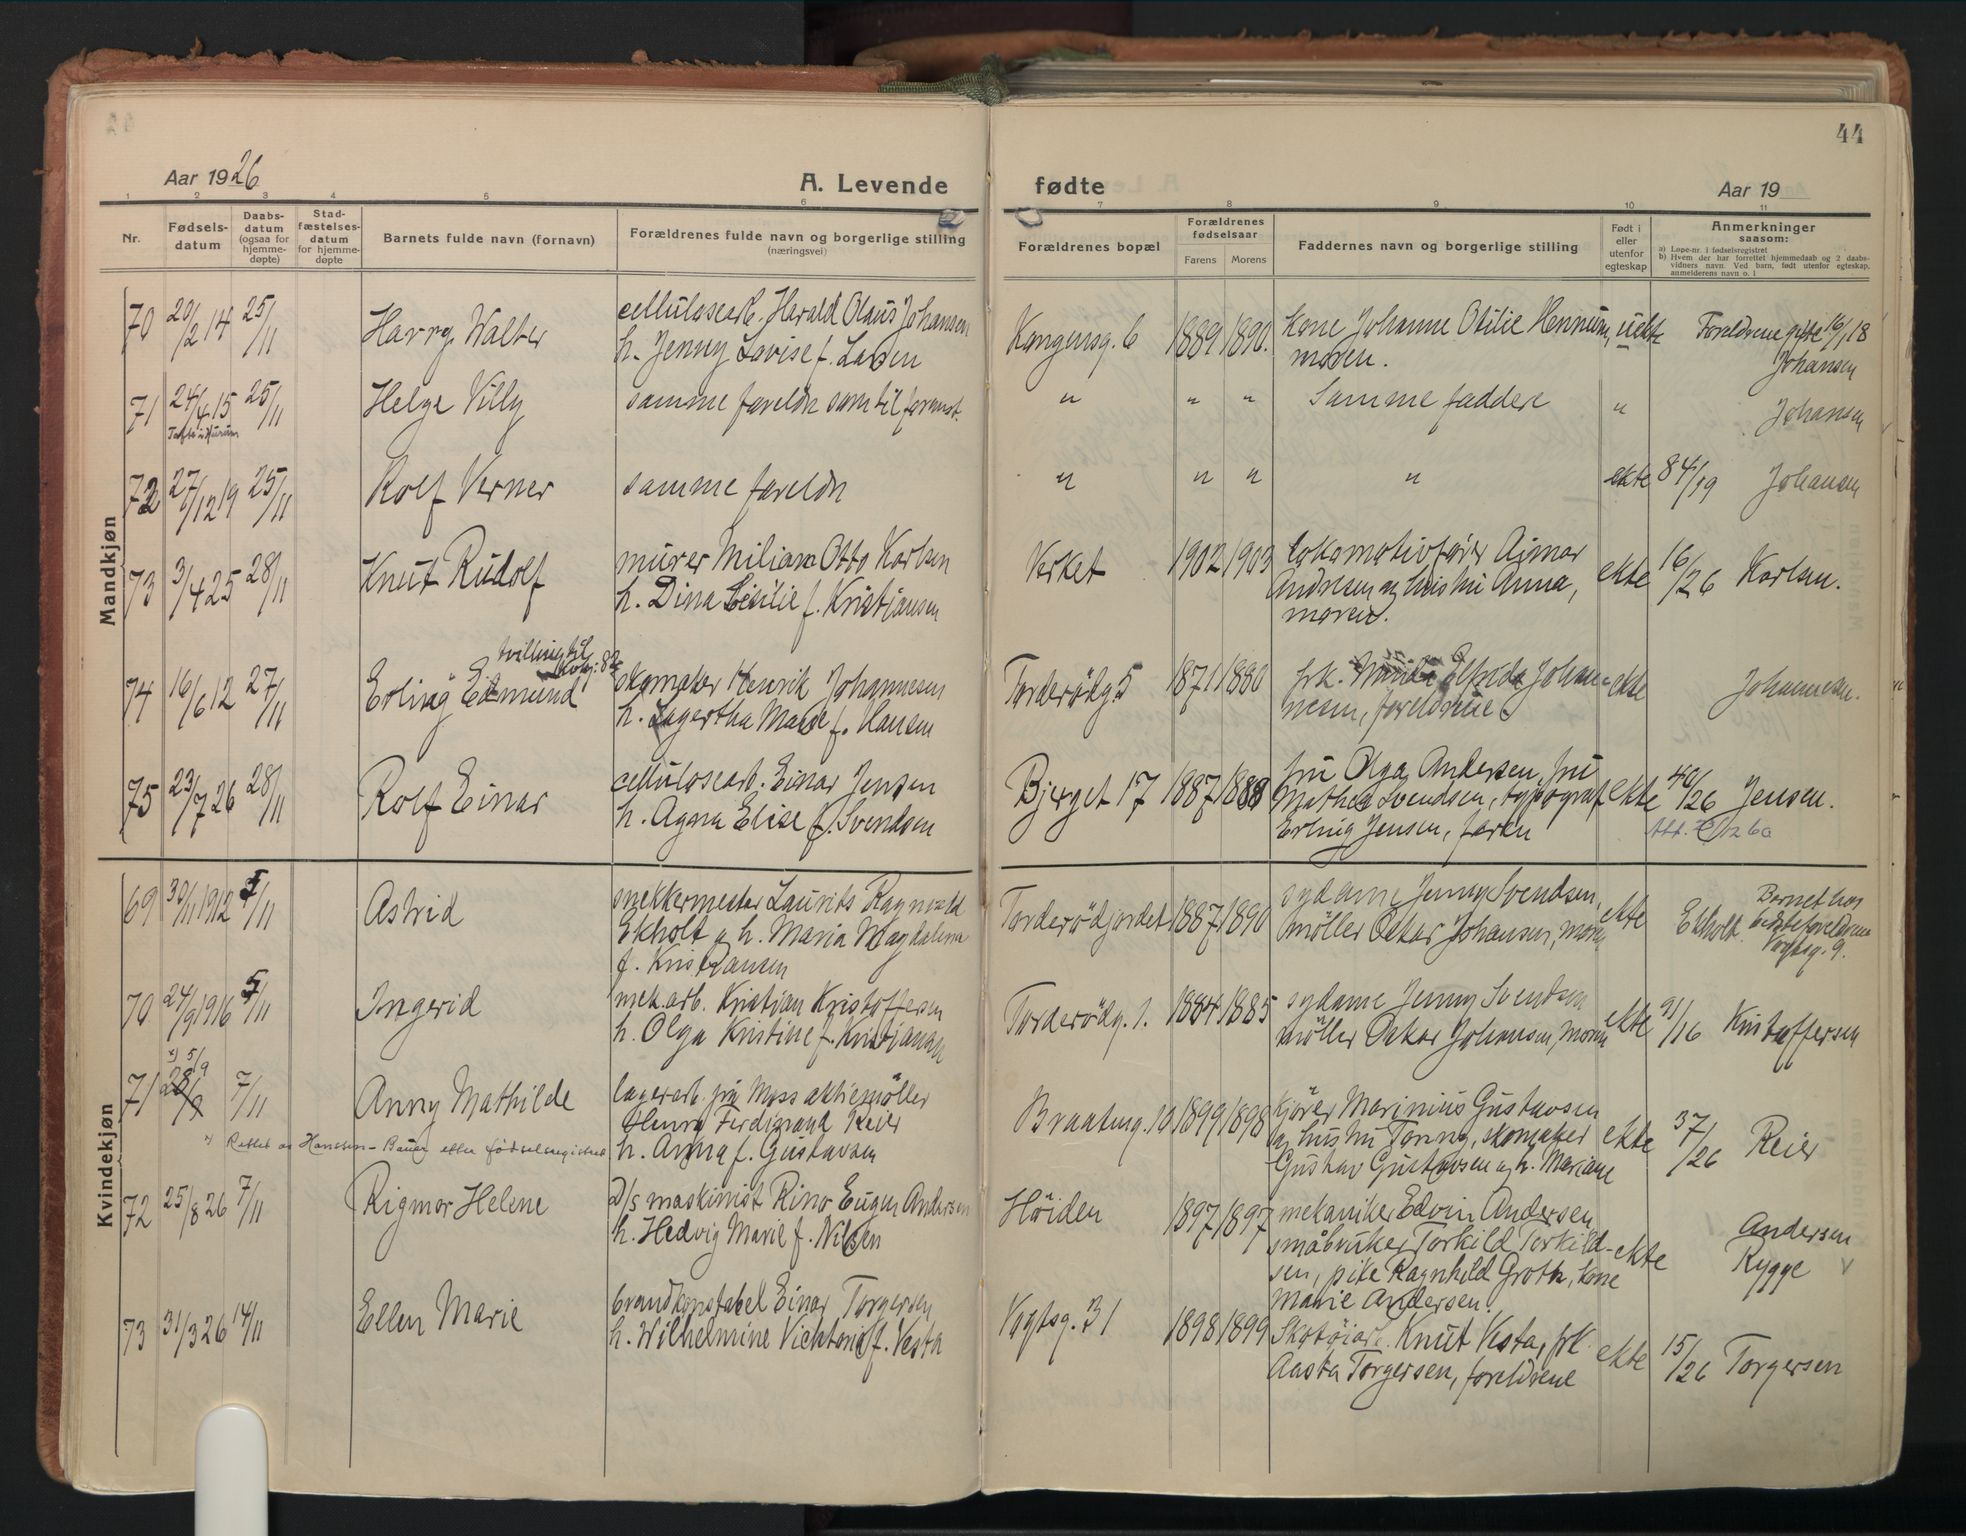 44
Aar 1926
A. Levende
fødte
Aar 19
1 2 3 4 5 6 7 8 9 10 11
Nr.
Fødsels-
datum
Daabs-
datum
(ogsaa for
hjemme-
døpte)
Stad-
fæstelses-
datum
for hjemme-
døpte
Barnets fulde navn (fornavn)
Forældrenes fulde navn og borgerlige stilling
(næringsvei)
Forældrenes bopæl
Forældrenes
fødselsaar
Farens Morens
Faddernes navn og borgerlige stilling
Født i
eller
utenfor
egteskap
Anmerkninger
saasom:
a) Løpe-nr. i fødselsregistret
b) Hvem der har forrettet hjemmedaab og 2 daabs-
vidners navn. Ved barn, født utenfor egteskap,
anmelderens navn o. l
Mandkjøn
70 20/2 14 25/11 Harry Walter
cellulosearb. Harald Olaus Johansen
h. Jenny Lovise f. Larsen
Kongensg. 6 1889 1890.
kone Johanne Otilie Hennum,
moren.
uekte
Foreldrene gifte 16/1 18
Johansen
71 24/4 15 25/11 Helge Villy
Tofte i Hurum
samme foreldre som til foranst.
" " " Samme faddere " Johansen
72 27/12 19 25/11 Rolf Verner
samme foreldre
" " " " ekte 84/19 Johansen
73 3/4 25 28/11 Knut Rudolf
murer Milian Otto Karlsen
h. Dina Cesilie f. Kristiansen
Verket 1902 1903
lokomotivfører Ajmar
Andresen og hustru Anna,
moren.
ekte 16/26 Karlsen.
74 16/6 12 27/11 Erling Edmund
tvilling til
skomaker Henrik Johannesen
h. Lagertha Marie f. Hansen
Torderødg. 5 1871 1880
frk. Elfrida Johan-
nesen, foreldrene
ekte Johannesen.
75 23/7 26 28/11 Rolf Einar
cellulosearb. Einar Jensen
h. Agna Elise f. Svendsen
Bjerget 17 1887 1888
fru Olga Andersen, fru
Mathea Svendsen, typograf
Erling Jensen, faren
ekte 40/26 Jensen.
Kvindekjøn
69 30/11 1912 5/11 Astrid
snekkermester Laurits Ragnvald
Ekholt og h. Maria Magdalena
f. Kristiansen
Torderødjordet 1887 1890
sydame Jenny Svendsen,
møller Oskar Johansen, moren
ekte Ekholt.
Barnet hos
bedsteforeldrene
Vogtsg. 9.
70 24/9 1916 5/11 Ingerid
mek.arb. Kristian Kristoffersen
h. Olga Kristine f. Kristiansen
Torderødg. 1. 1884 1885
sydame Jenny Svendsen
møller Oskar Johansen, moren
ekte 91/16 Kristoffersen
71 x) 5/9 7/11 Anny Mathilde
lagerarb. på Moss aktiemøller
Henry Ferdinand Reier
h. Anna f. Gustavsen
x) Rettet av Hanssen-Bauer etter fødselsregistret
Braatung. 10 1899 1898
kjører Marinius Gustavsen
og hustru Tonny, skomaker
Gustav Gustavsen og h. Mariane
ekte 37/26 Reier
72 25/8 26 7/11 Rigmor Helene
D/s maskinist Rino Eugen Andersen
h. Hedvig Marie f. Nilsen
Høiden 1897 1897
mekaniker Edvin Andersen,
småbruker Torkild Torkild-
sen, pike Ragnhild Groth, kone
Marie Andersen.
ekte
Andersen
Rygge
73 31/3 26 14/11 Ellen Marie
brandkonstabel Einar Torgersen
h. Wilhelmine Vicktoria f. Vesta
Vogtsg. 31 1898 1899
Skotøiarb. Knut Vesta, frk.
Aasta Torgersen, foreldrene
ekte 15/26 Torgersen